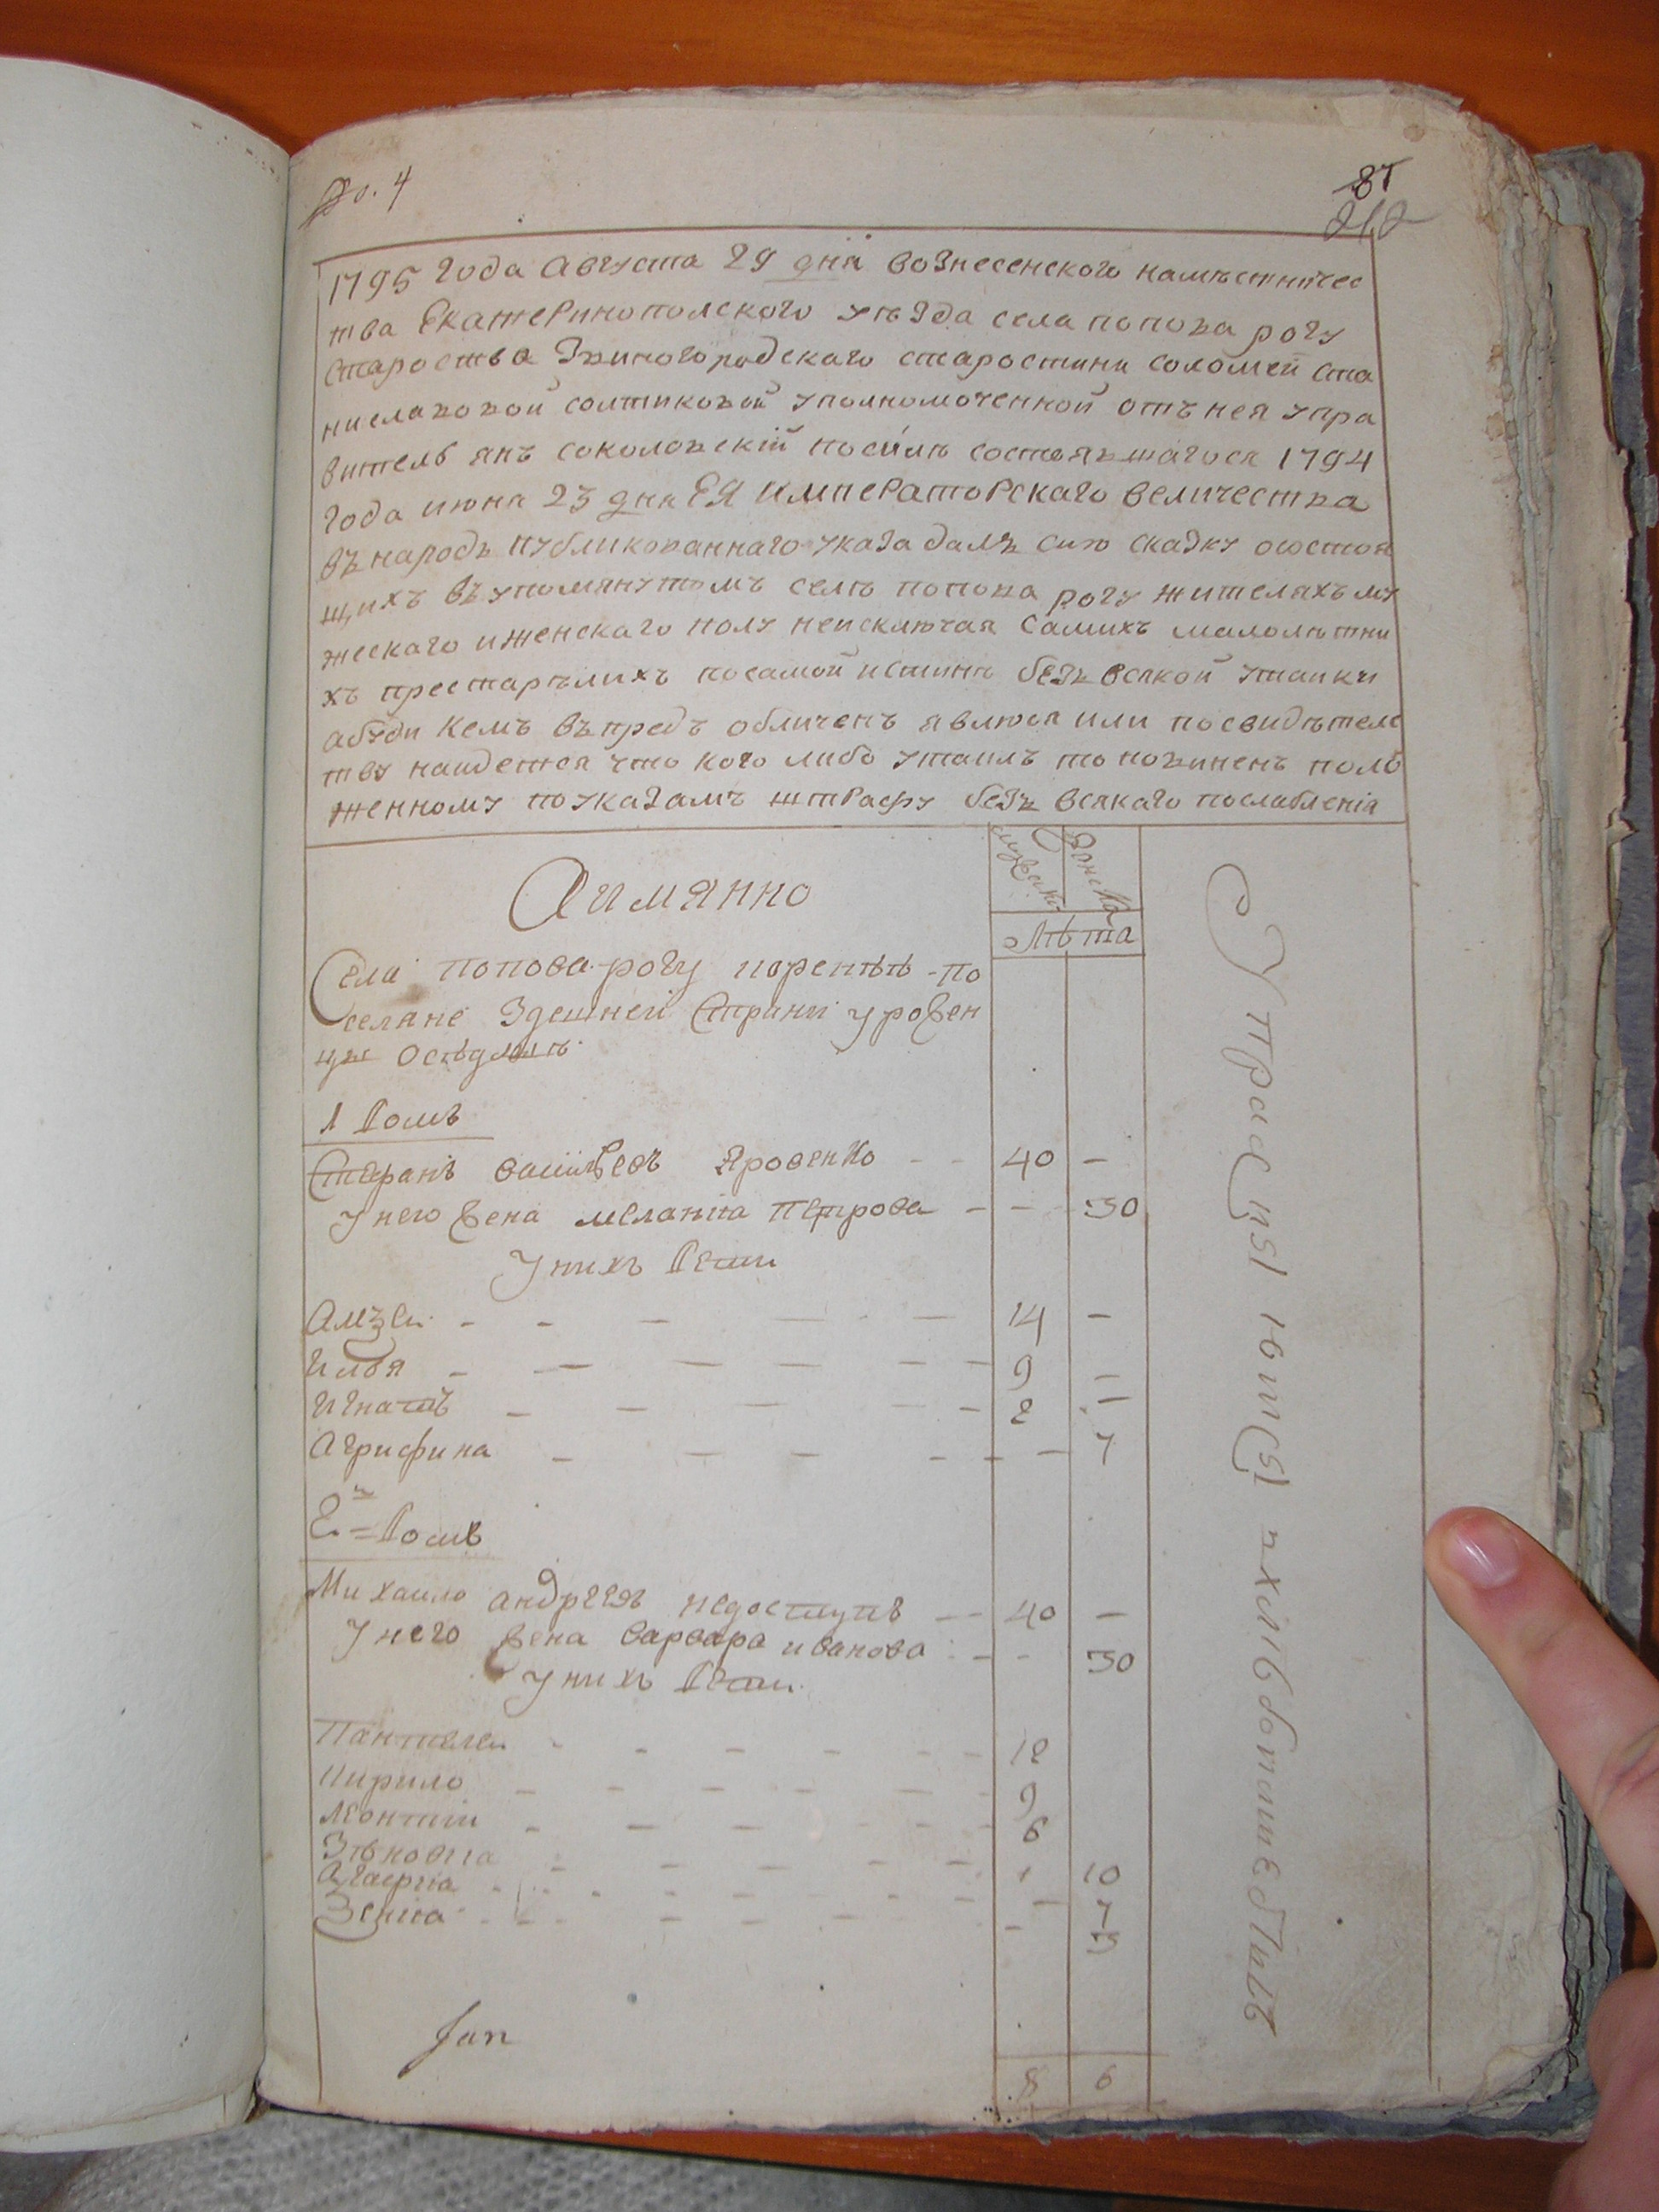 №. 4
87
212
1795 года августа 29 дня вознесенского намѣстничес
тва Екатеринополского уѣзда села попова рогу
староства Звиногородского старостини соломеи ста
ниславовой солтиковой уполномоченной отъ нея упра
витель янъ соколовскій посилѣ состоявшагося 1794
года июня 23 дня ЕЯ императорскаго величества
въ народъ публикованнаго указа далъ сию сказку осостоя
щихъ въ упомянутомъ селѣ попова рогу жителяхъ му
жескаго и женскаго полу неисключая самихъ малолѣтни
хъ престарѣлихъ посамой истинѣ безъ всякой утаики
абуди кемъ въпредъ обличенъ явлюся или по свидѣтелс
тву наидется что кого либо утаилъ то повиненъ поло
женному поуказамъ штрафу безъ всякаго послабленія
Аимянно
мужеска
Женска
Лѣта
Села попова рогу коренѣѣ по
селяне Здешней Страни уроЖен
цы
1 Домъ
Стефанъ василЪевъ Яровенко - - 40 -
У него Жена меланія петрова - - - 30
У нихъ Дети
- - - - - 14 -
Илья - - - - - - 9 -
Игнатъ - - - - - 2 -
Агрифина - - - - - - 7
2й = Домъ
Михаило андреевъ недоступъ - - 40 -
У него Жена варвара иванова - - 30
У нихъ Дети.
Пантелеи - - - - - - 12
Кирило - - - - - - 9
Леонтии - - - - - - 6
Зѣновия - - - - - 10
Агафия - - - - - - 7
- - - - - - 3
Jan
8 6